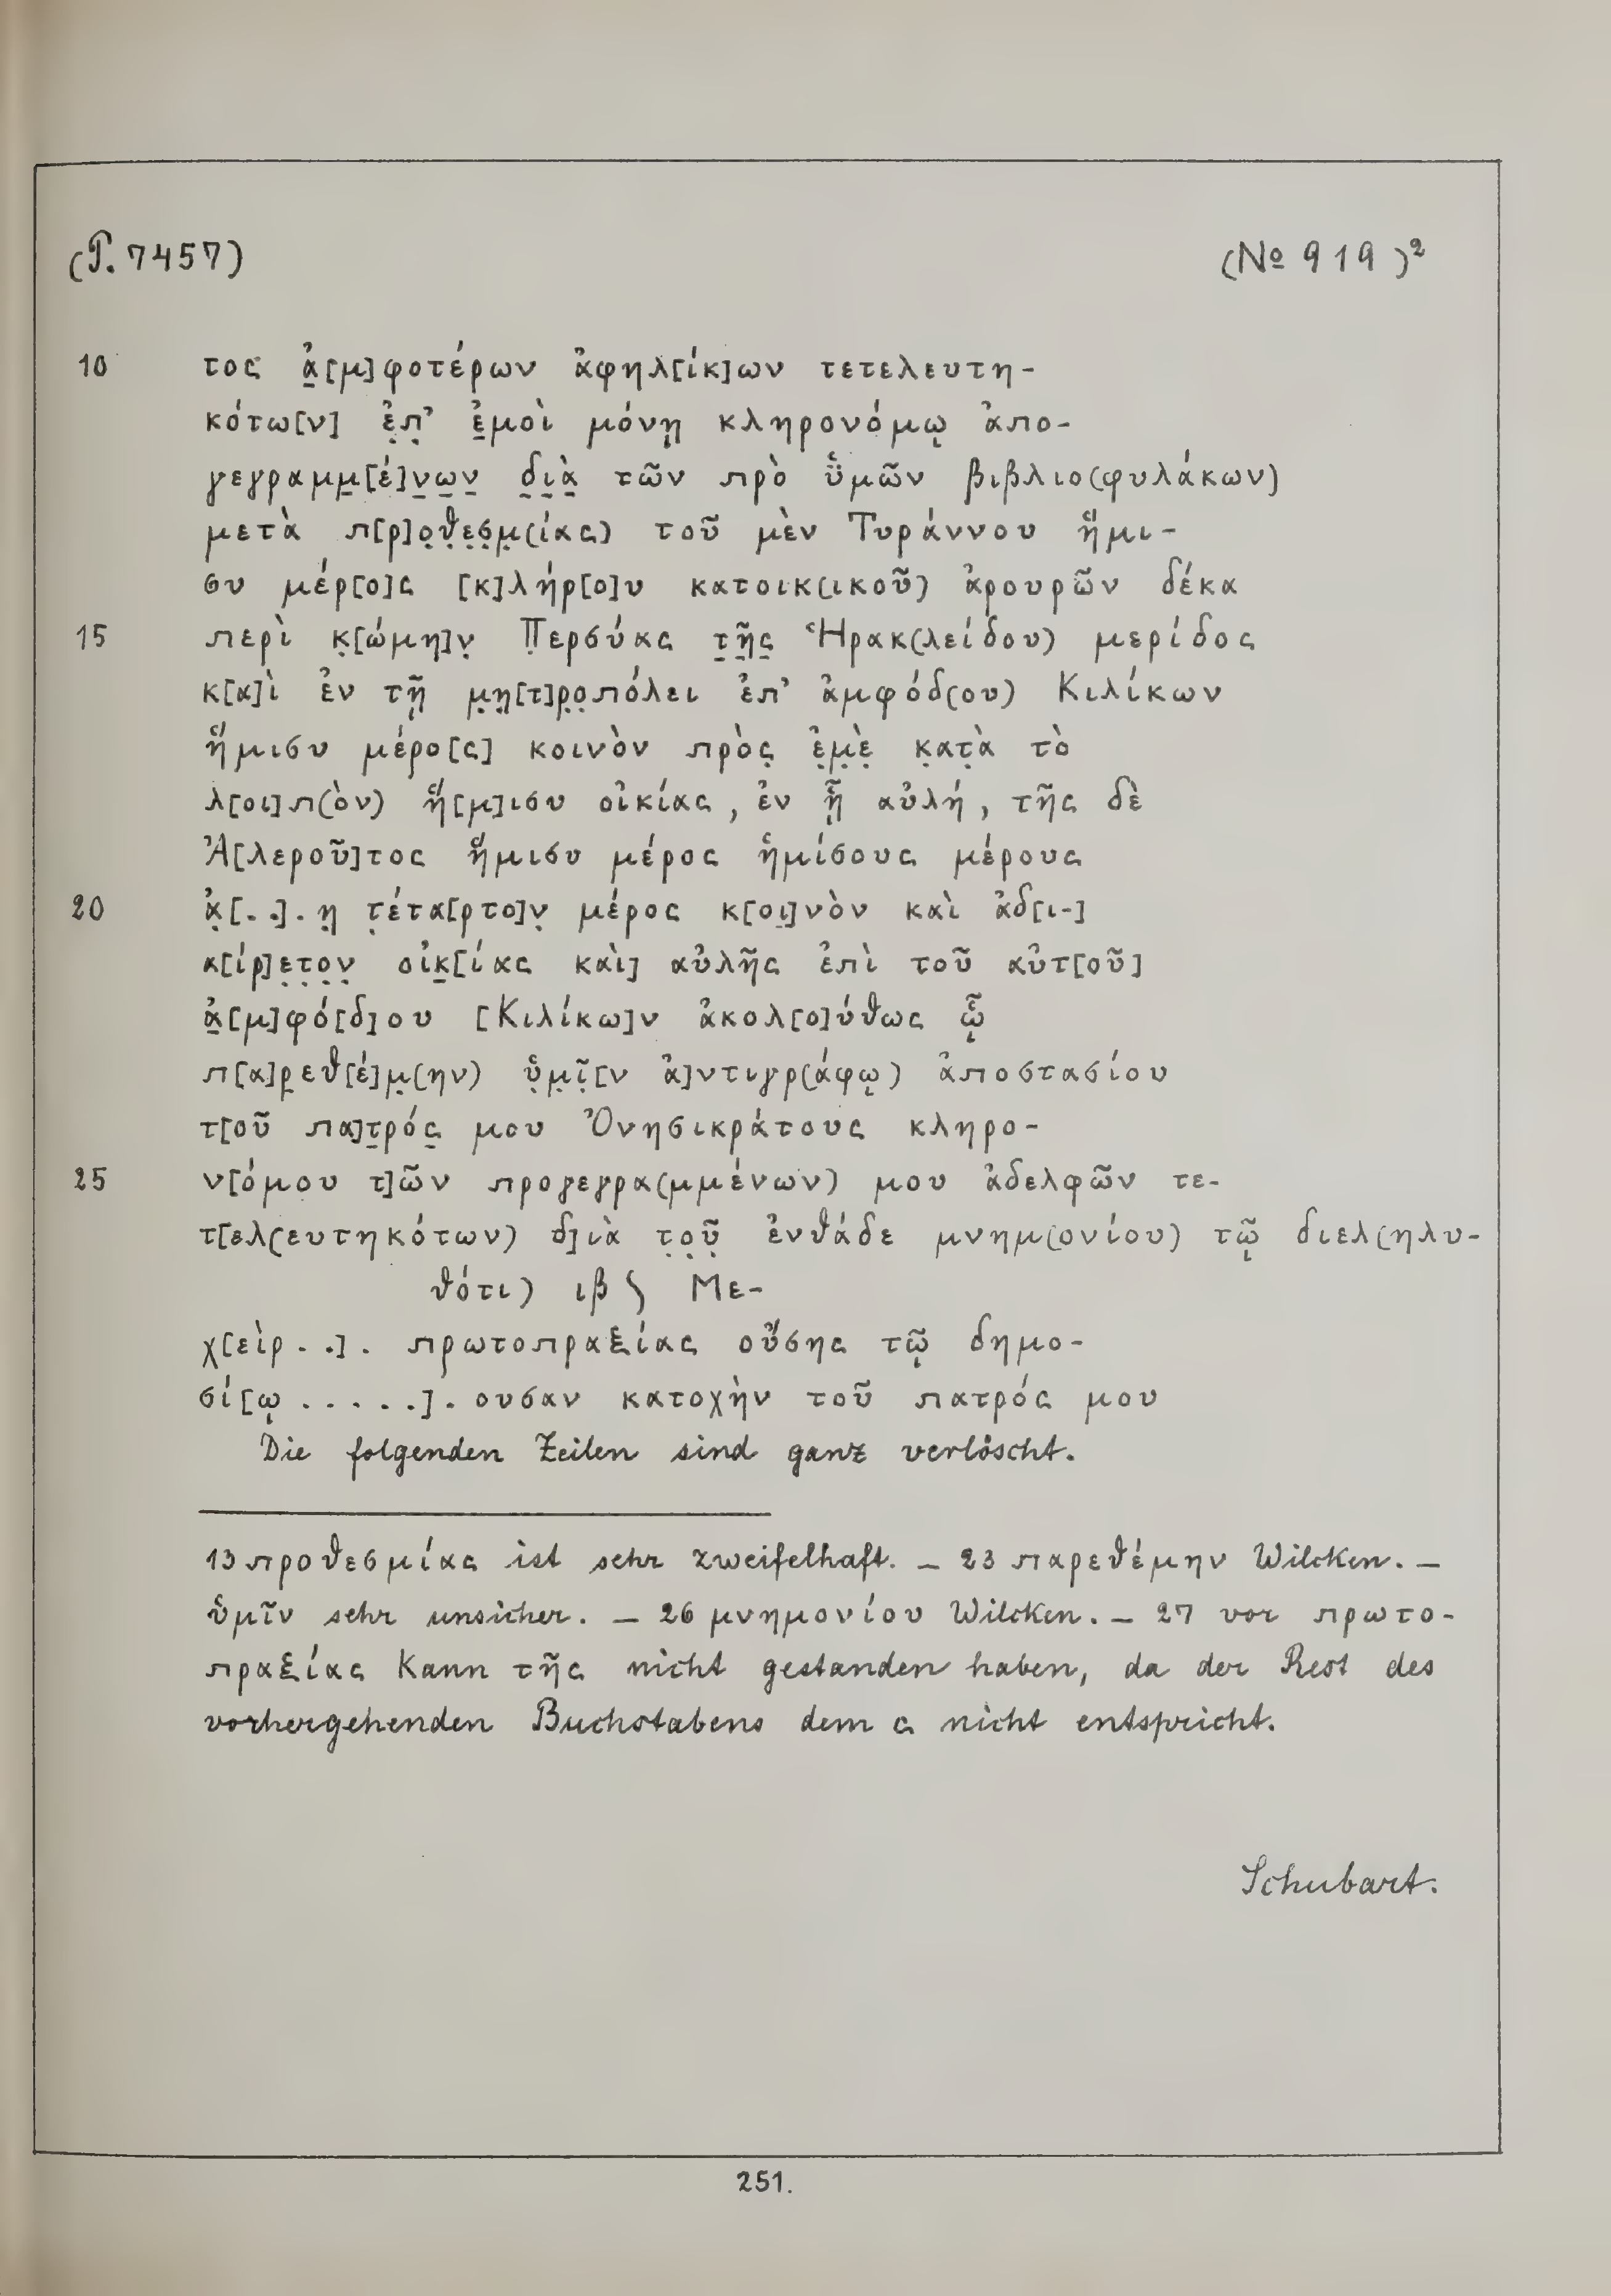 (P. 7457) (№ 919)²
10 τος ἀ̣[μ]φοτέρων ἀφηλ[ίκ]ων τετελευτη-
κότω[ν] ἐ̣π̣’ ἐ̣μοὶ μόνῃ κληρονόμῳ ἀπο-
γεγραμμ̣[έ]ν̣ω̣ν̣ δ̣ι̣ὰ̣ τῶν πρὸ ὑ̈μῶν βιβλιο(φυλάκων)
μετὰ π[ρ]ο̣θ̣ε̣σ̣μ̣(ίας) τοῦ μὲν Τυράννου ἥμι-
συ μέρ[ο]ς [κ]λήρ[ο]υ κατοικ(ικοῦ) ἀρουρῶν δέκα
15 περὶ κ̣[ώμη]ν̣ Π̣ερσύας τ̣ῆ̣ς̣ Ἡρακ(λείδου) μερίδος
κ[α]ὶ ἐν τῇ μ̣η̣[τ]ρ̣ο̣πόλει ἐπ’ ἀμφόδ(ου) Κιλίκων
ἥμισυ μέρο[ς] κοινὸν πρὸς̣ ἐ̣μ̣ὲ̣ κ̣ατ̣ὰ τὸ
λ[οι]π(ὸν) ἥ[μ]ισυ οἰκίας, ἐν ᾗ αὐλή, τῆς δὲ
Ἀ[λεροῦ]τος ἥμισυ μέρος ἡμίσους μέρους
20 ἀ̣[..].η̣ τ̣έτα[ρτο]ν̣ μέρος κ[οι]νὸν καὶ ἀδ[ι-]
α[ίρ]ε̣τ̣ο̣ν̣ οἰκ̣[ίας καὶ] αὐλῆς ἐπὶ τοῦ αὐτ[οῦ]
ἀ̣[μ]φό[δ]ου [Κιλίκω]ν ἀκολ[ο]ύθως ᾧ
π[α]ρ̣εθ[έ]μ̣(ην) ὑ̣μ̣ῖ̣[ν ἀ]ντιγρ(άφῳ) ἀποστασίου
τ[οῦ πα]τ̣ρός̣ μου Ὀνησικράτους κληρο-
25 ν[όμου τ]ῶν προγεγρα(μμένων) μου ἀδελφῶν τε-
τ[ελ(ευτηκότων) δ]ιὰ τ̣ο̣ῦ̣ ἐνθάδε μνημ(ονίου) τῷ διελ(ηλυ-
θότι) ιβ ⟆ Με-
χ[εὶρ ..]. πρωτοπραξίας οὔσης τῷ δημο-
σί[ῳ .....].ουσαν κατοχὴν τοῦ πατρός μου
Die folgenden Zeilen sind ganz verlöscht.
13 προθεσμίας ist sehr zweifelhaft. — 23 παρεθέμην Wilcken. —
ὑμῖν sehr unsicher. — 26 μνημονίου Wilcken. — 27 vor πρωτο-
πραξίας kann τῆς nicht gestanden haben, da der Rest des
vorhergehenden Buchstabens dem ς nicht entspricht.
Schubart.
251.